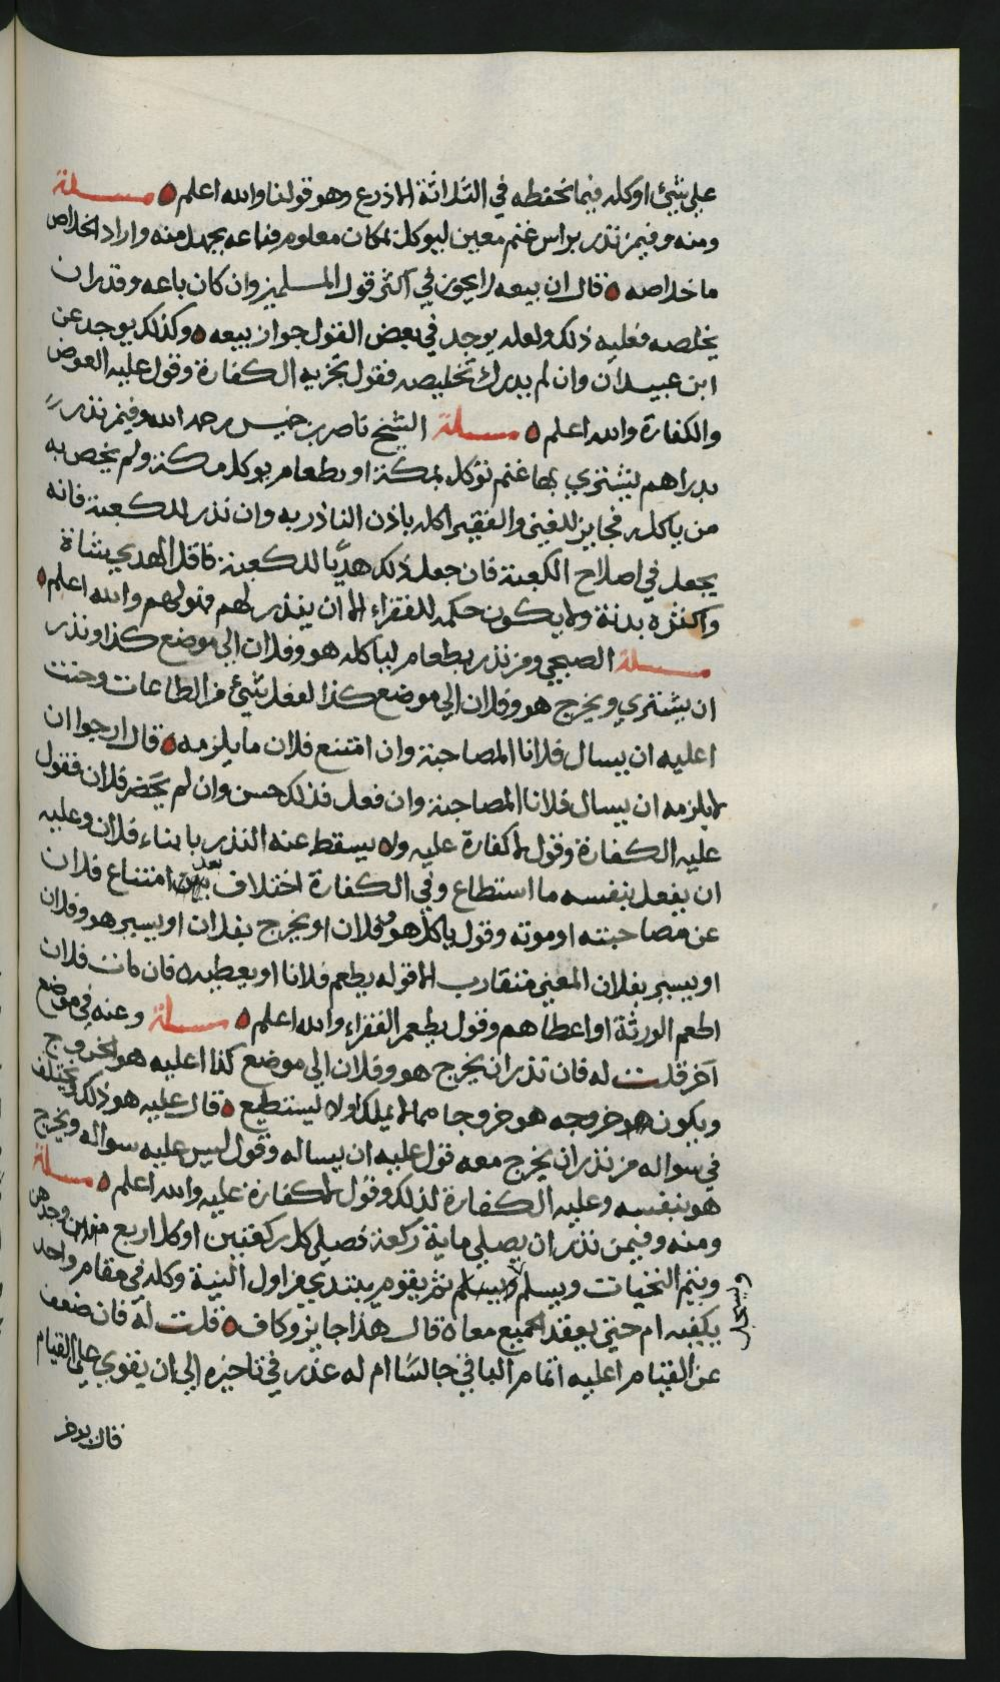 على شيئ او كله فيما نحفظه في الثلاثة الاذرع وهو قولنا والله اعلم ه مسئلة
ومنه وفيمن نذر براس غنم معين ليوكل بمكان معلوم فباعه بجهل منه واراد الخلاص
ما خلاصه ه قال ان بيعه لا يجوز في اكثر قول المسلمين وان كان باعه وقدر ان
يخلصه فعليه ذلك ولعله يوجد في بعض القول جواز بيعه ه وكذلك يوجد عن
ابن عبيدان وان لم يدرك تخليصه فقول تجزيه الكفارة وقول عليه العوض
والكفارة والله اعلم ه مسئلة الشيخ ناصر بن خميس رحمه الله وفيمن نذر
بدراهم يشتري بها غنم توكل بمكة او بطعام يوكل بمكة ولم يخص به
من ياكله فجايز للغني والفقير اكله باذن الناذر به وان نذر للكعبة فانه
يجعل في اصلاح الكعبة فان جعل ذلك هديا للكعبة فاقل الهدي شاة
واكثره بدنة ولا يكون حكمه للفقراء الا ان ينذر لهم فهو لهم والله اعلم ه
مسئلة الصبحي ومن نذر بطعام لياكله هو وفلان الى موضع كذا او نذر
ان يشتري ويخرج هو وفلان الي موضع كذا لفعل شيئ من الطاعات وحنث
اعليه ان يسال فلانا المصاحبة وان امتنع فلان ما يلزمه ه قال ارجوا ان
لا يلزمه ان يسال فلانا المصاحبة وان فعل فذلك حسن وان لم يحضر فلان فقول
عليه الكفارة وقول لا كفارة عليه ولا يسقط عنه النذر باباء فلان وعليه
ان يفعل بنفسه ما استطاع وفي الكفارة اختلاف بعد امتناع فلان
عن مصاحبته او موته وقول ياكل هو وفلان او يخرج بفلان او يسير هو وفلان
او يسير بفلان المعني متقارب الا قوله يطعم فلانا او يعطيه ه فان مات فلان
اطعم الورثة او اعطاهم وقول يطعم الفقراء والله اعلم ه مسئلة وعنه في موضع
آخر قلت له فان نذر ان يخرج هو وفلان الي موضع كذا اعليه هو الخروج
ويكون خروجه هو خروجا مما لا يملك ولا يستطيع ه قال عليه هو ذلك ويختلف
في سواله من نذر ان يخرج معه قول عليه ان يساله وقول ليس عليه سواله ويخرج
هو بنفسه وعليه الكفارة لذلك وقول لا كفارة عليه والله اعلم ه مسئلة
ومنه وفيمن نذر ان يصلي ماية ركعة فصلي كل ركعتين او كل اربع منهن وحدهن
ويتم التحيات ويسلم ثم يقوم يبتدي من اول النية وكله في مقام واحد
يكفيه ام حتى يعقد الجميع معا ه قال هذا جايز وكاف ه قلت له فان ضعف
عن القيام اعليه اتمام الباقي جالسا ام له عذر في تاخيره الى ان يقوي على القيام